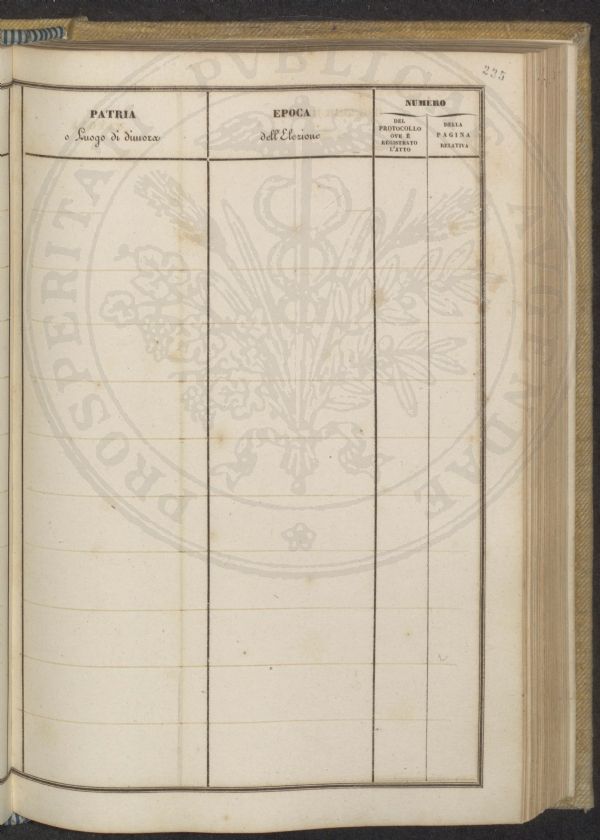 235
PATRIA
o Luogo di dimora
EPOCA
dell'Elezione
NUMERO
DEL
PROTOCOLLO
OVE È
REGISTRATO
L'ATTO
DELLA
PAGINA
RELATIVA
PROSPERITATI PUBLICAE AUGENDAE